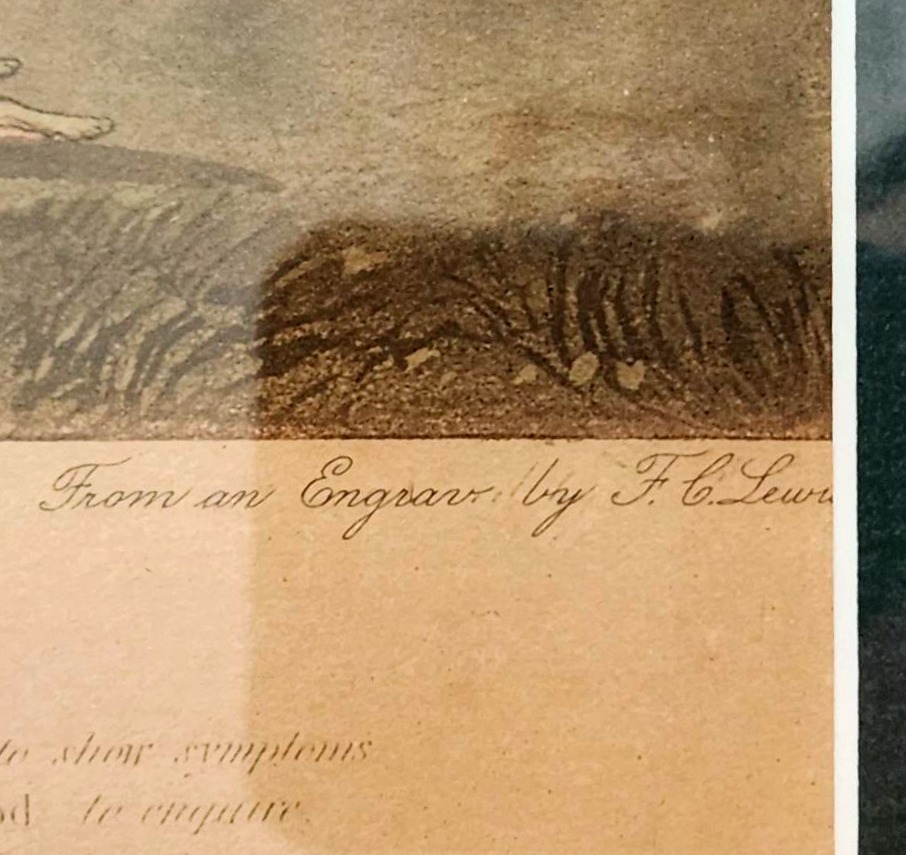 From an Engrav by F. C. Lewi
to show symptoms
od to enquire